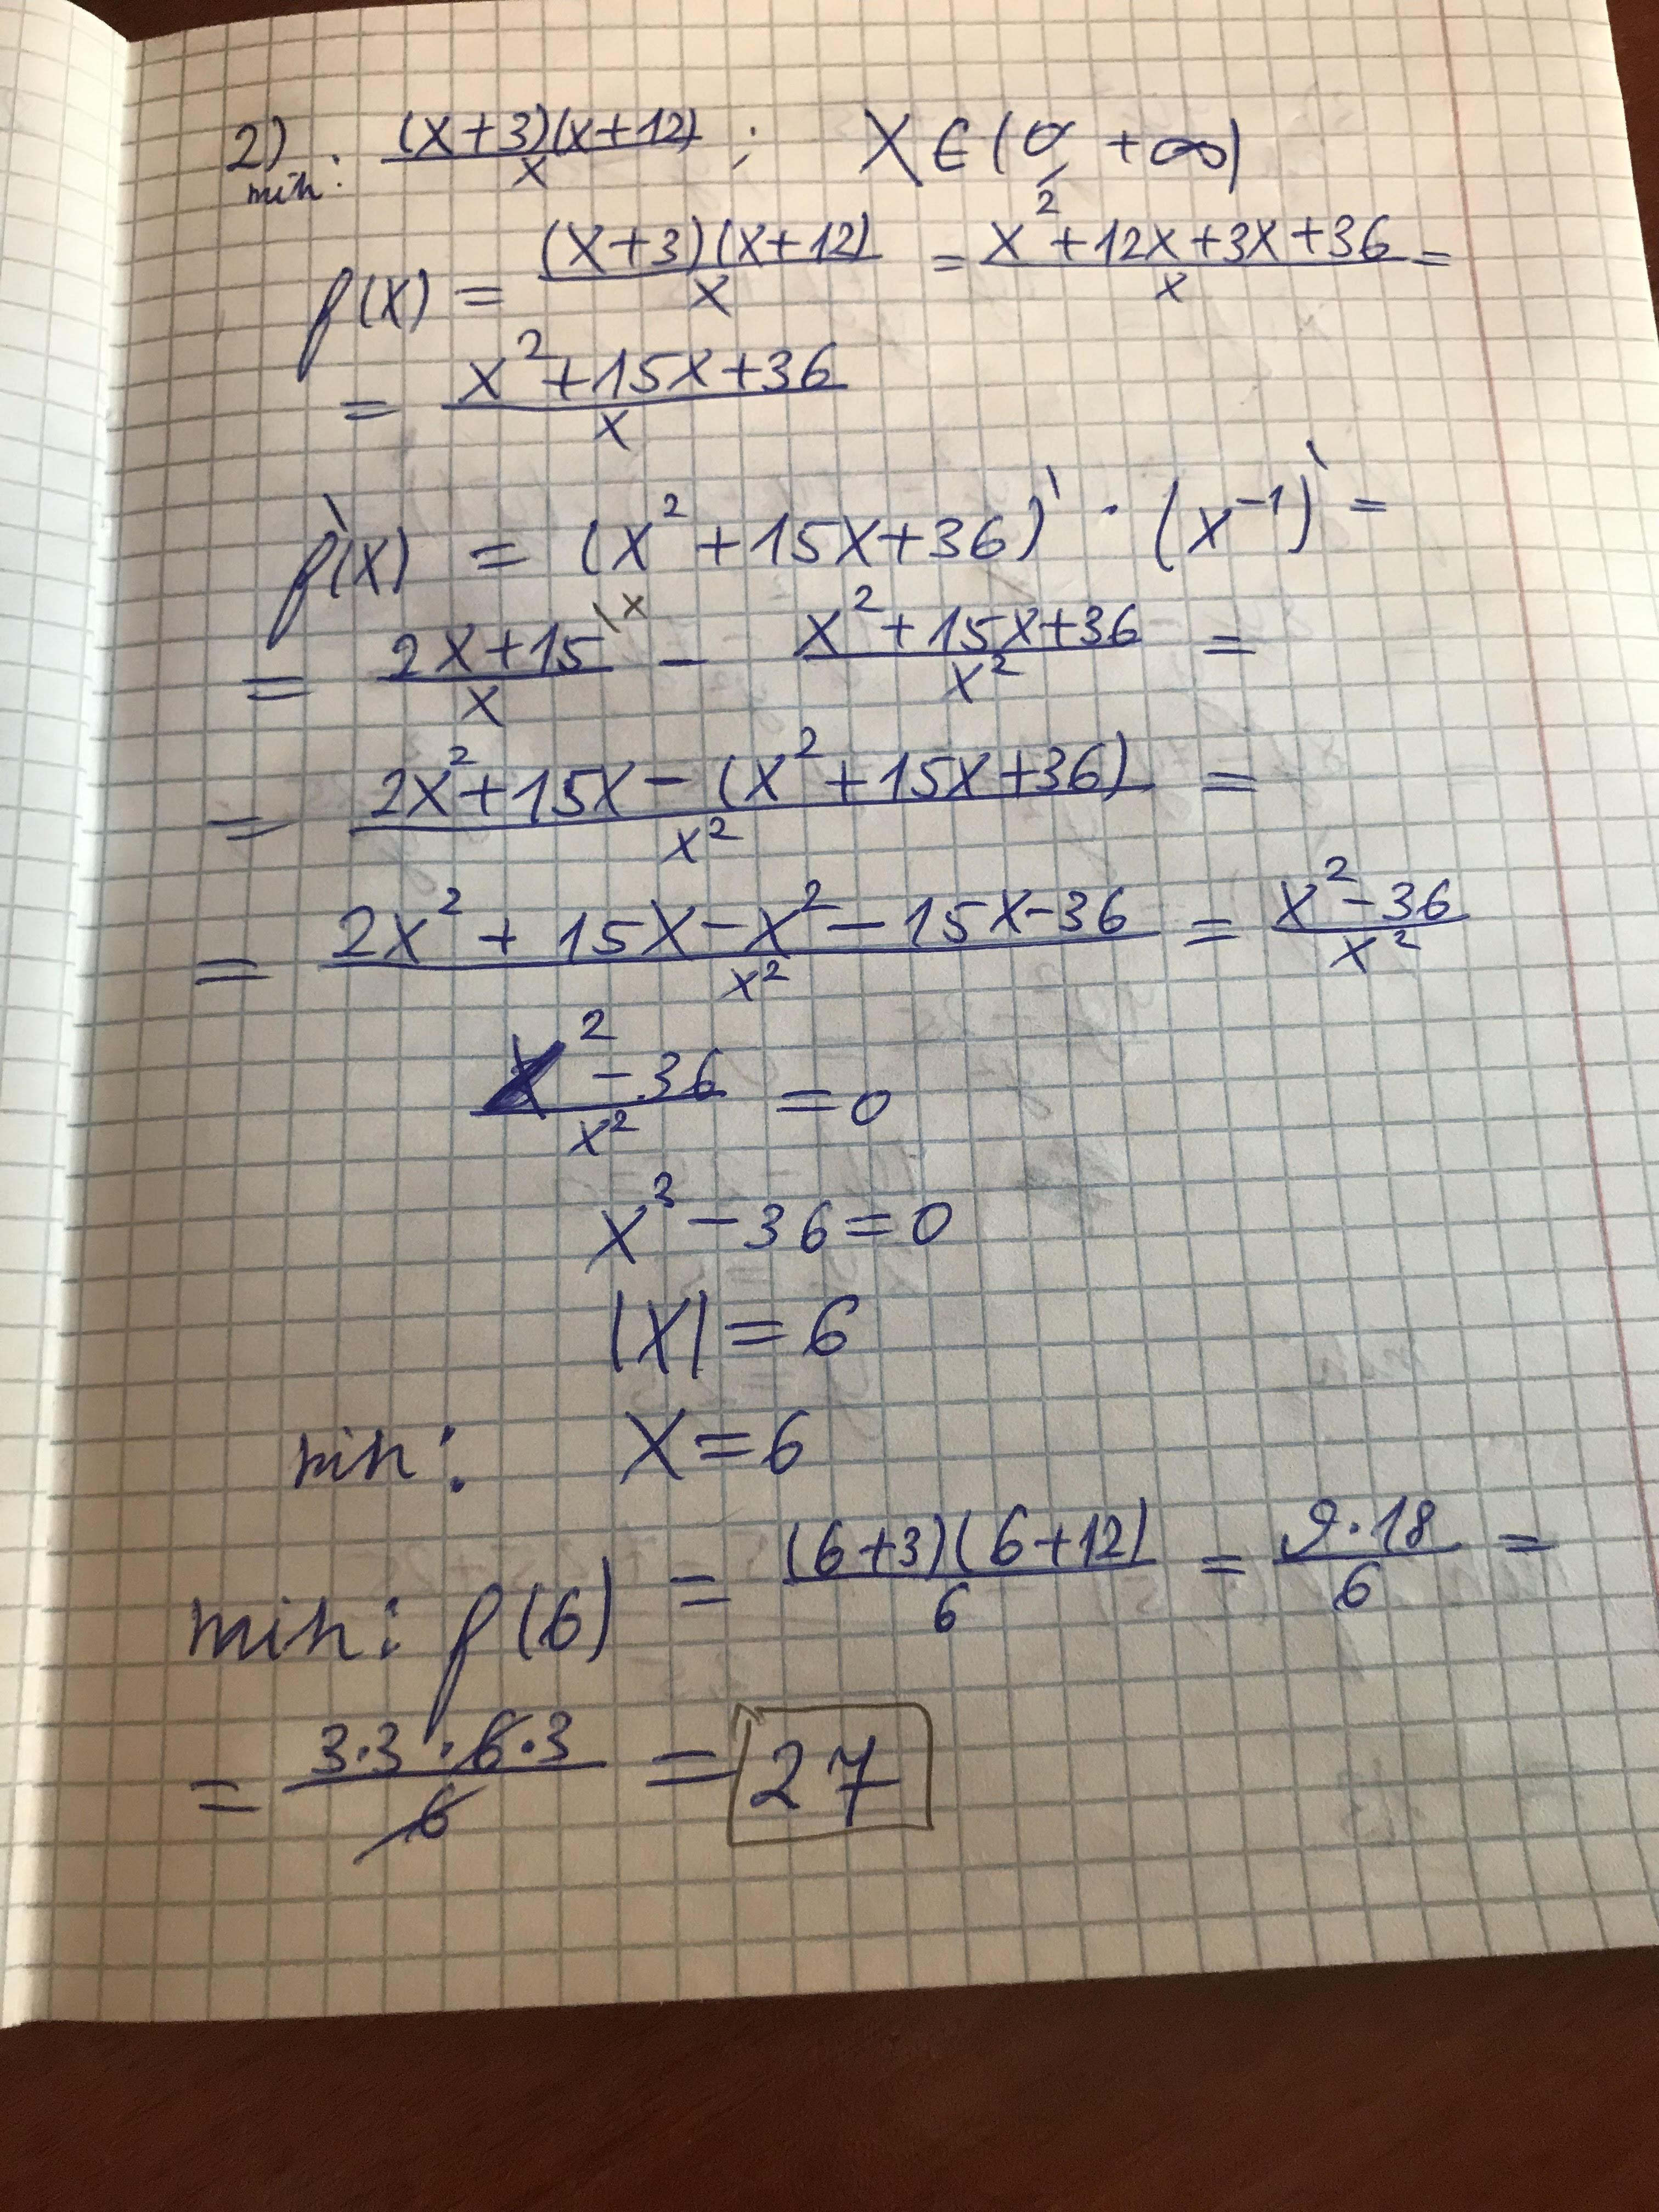 2) min: (x+3)(x+12)/x ; X ∈ (0, +∞)
f(x) = (x+3)(x+12)/x = x²+12x+3x+36/x =
= x²+15x+36/x
f'(x) = (x²+15x+36)' · (x⁻¹)' =
= 2x+15/x \x - x²+15x+36/x² =
= 2x²+15x-(x²+15x+36)/x² =
= 2x²+15x-x²-15x-36/x² = x²-36/x²
x²-36/x² = 0
x²-36=0
|x|=6
min: x=6
min: f(6) = (6+3)(6+12)/6 = 9·18/6 =
= 3·3·6·3/6 = 27